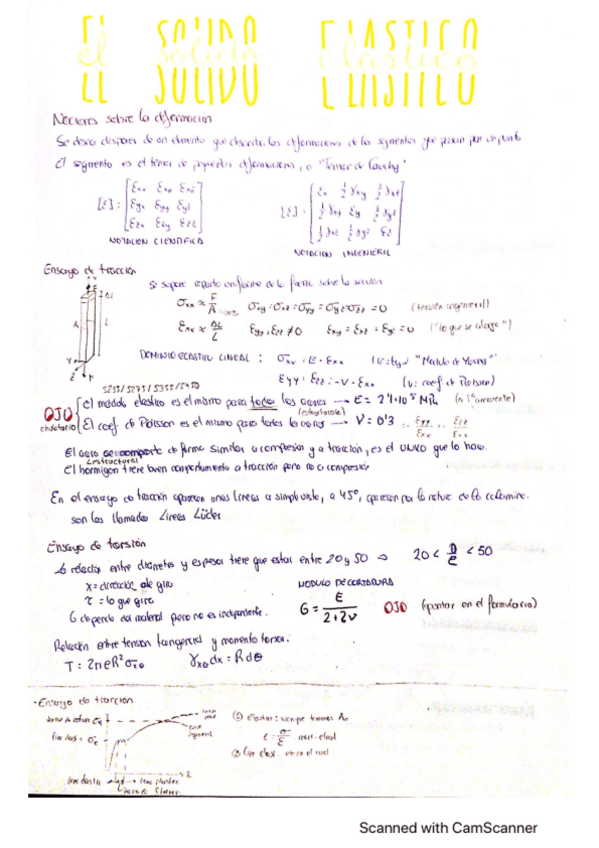 EL SOLIDO ELASTICO
el solido elastico
Nociones sobre la deformación
Se desea disponer de un elemento que describa las deformaciones de los segmentos que pasan por un punto
El segmento es el tensor de pequeñas deformaciones, o "Tensor de Cauchy"
[ε] = [εxx εxy εxz
εyx εyy εyz
εzx εzy εzz]
NOTACION CIENTIFICA
[ε] = [εx ½γxy ½γxz
½γxy εy ½γyz
½γxz ½γyz εz]
NOTACION INGENIERIL
Ensayo de tracción
Se supone reparto uniforme de la fuerza sobre la sección
σxx ≈ F/A σxy = σxz = σyy = σyz = σzz = 0 (tensión ingenieril)
εxx ≈ ΔL/L εyy, εzz ≠ 0 εxy = εxz = εyz = 0 ("lo que se alarga")
ΔL
A
L
DOMINIO ELASTICO LINEAL: σxx = E · εxx "Modulo de Young")
εyy = εzz = -ν · εxx (ν: coef de Poisson)
S235/S275/S355/S450
OJO El modulo elastico es el mismo para todos los aceros → E = 2'1·10⁵ MPa
El coef. de Poisson es el mismo para todos → ν = 0'3 εyy/εxx εzz/εxx
El acero se comporta de forma similar a compresion y a tracción, es el UNICO que lo hace.
estructural
El hormigon tiene buen comportamiento a tracción pero no a compresión
En el ensayo de tracción aparecen unas lineas a simple vista, a 45°, aparecen por la rotura de la
son las llamadas Lineas Lüder
Ensayo de torsión
La relación entre diametros y espesor tiene que estar entre 20 y 50 ⇒ 20 < D/e < 50
x = dirección de giro
τ = lo que gira
MODULO DE CORTADURA
G depende del material pero no es independiente.
G = E/(2+2ν) OJO (apuntar en el formulario)
Relación entre tension tangencial y momento torsor.
T = 2πeR²σxθ γxθ dx = R dθ
- Ensayo de tracción
① Elastico: siempre tenemos A₀
ε = σ/E